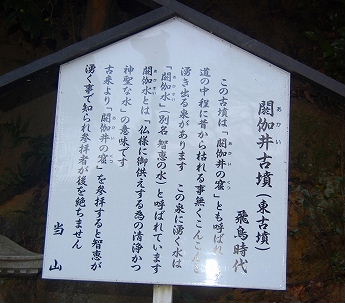 閼伽井古墳(東古墳)
あかい
飛鳥時代
この古墳は「閼伽井の窟」とも呼ばれ
道の中程に昔から枯れる事無くこんこんと
湧き出る泉があります この泉に湧く水は
「閼伽水」(別名 智恵の水)と呼ばれています
閼伽水とは「仏様に御供えする為の清浄かつ
神聖な水」の意味です
古来より「閼伽井の窟」を参拝すると智恵が
湧く事で知られ参拝者が後を絶ちません
当山